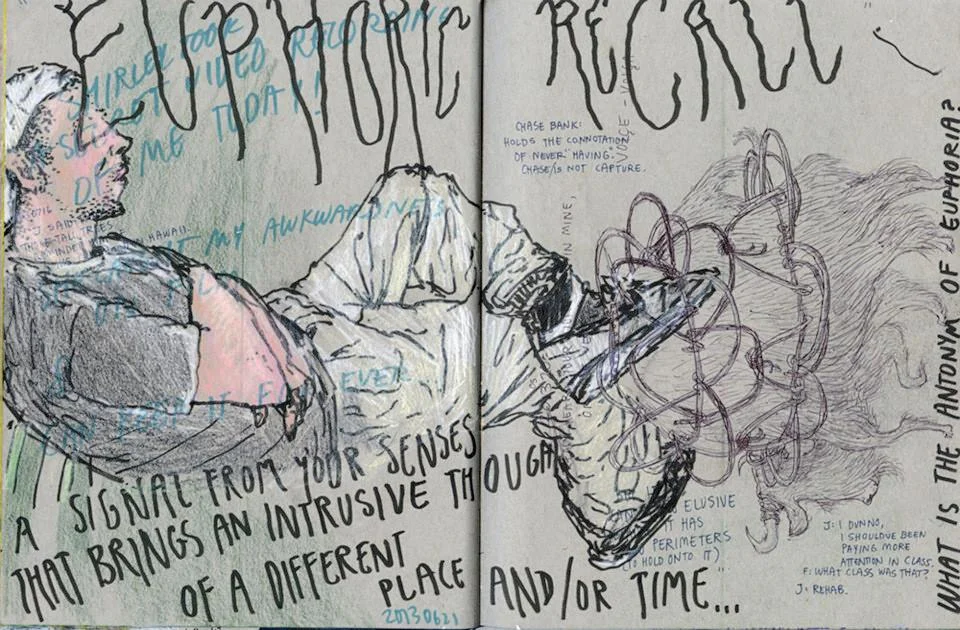 "EUPHORIC RECALL"
SHIRLEY TOOK
SECRET VIDEO RECORDING
OF ME TODAY!!
MY AWKWARDNESS
IT FOREVER
J SAID
TREES
HAWAII.
A SIGNAL FROM YOUR SENSES
THAT BRINGS AN INTRUSIVE THOUGHT
OF A DIFFERENT
PLACE AND/OR TIME..."
20130621
CHASE BANK:
HOLDS THE CONNOTATION
OF "NEVER" HAVING.
CHASE IS NOT CAPTURE.
VOICE -
MINE,
ELUSIVE
IT HAS
PERIMETERS
(TO HOLD ONTO IT)
J: I DUNNO,
I SHOULDVE BEEN
PAYING MORE
ATTENTION IN CLASS.
F: WHAT CLASS WAS THAT?
J: REHAB.
WHAT IS THE ANTONYM OF EUPHORIA?